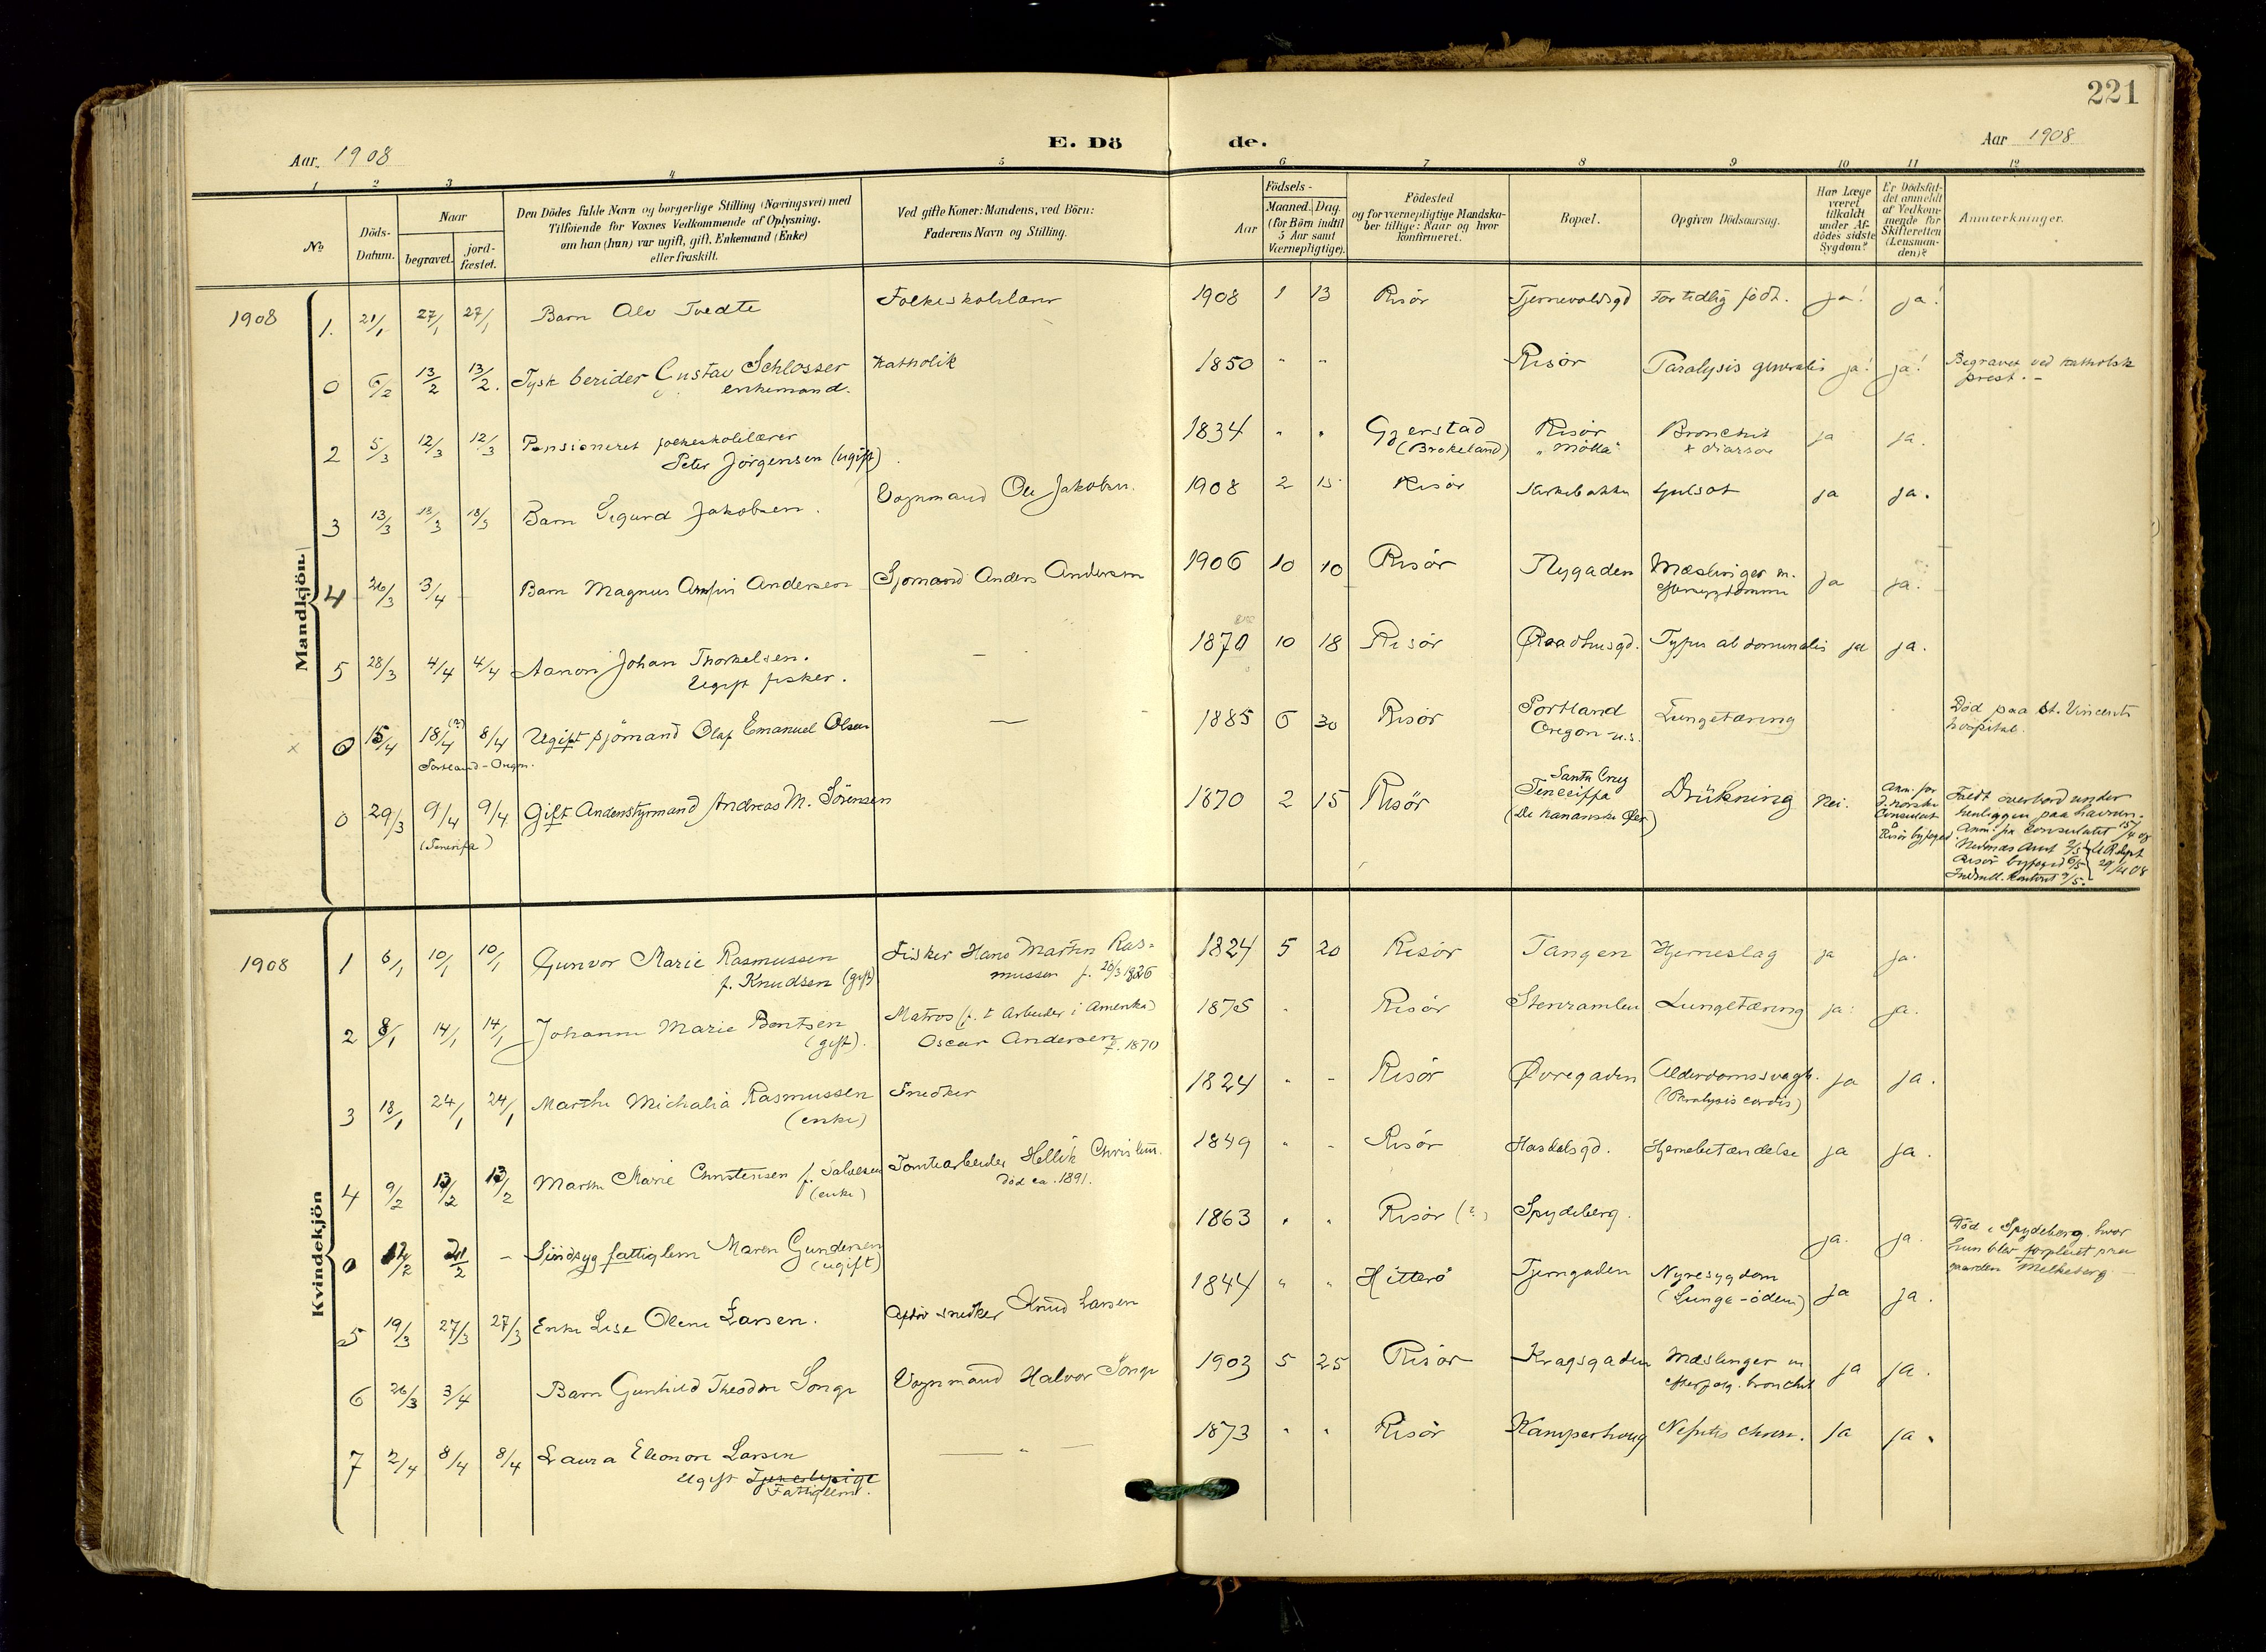 221
Aar. 1908
E. Dö de.
Aar 1908
1 2 3 4 5 6 7 8 9 10 11 12
No
Döds-
Datum.
Naar
begravet.
jord-
fæstet.
Den Dödes fulde Navn og borgerlige Stilling (Næringsvei) med
Tilföiende for Voxnes Vedkommende af Oplysning,
om han (hun) var ugift, gift, Enkemand (Enke)
eller fraskilt.
Ved gifte Koner: Mandens, ved Börn:
Faderens Navn og Stilling.
Födsels-
Aar
Maaned. Dag.
(for Börn indtil
5 Aar samt
Værnepligtige).
Födested
og for værnepligtige Mandska-
ber tillige: Naar og hvor
konfirmeret.
Bopæl.
Opgiven Dödsaarsag.
Har Læge
været
tilkaldt
under Af-
dödes sidste
Sygdom?
Er Dödsfal-
det anmeldt
af Vedkom-
mende for
Skifteretten
(Lensman-
den)?
Anmærkninger.
Mandkjön
1908 1. 21/1 27/1 27/1 Barn Alv Tvedte Folkeskolelærer 1908 1 13 Risör Tjernevoldsgd For tidlig födt. ja! ja!
0 6/2 13/2 13/2. Tysk berider Gustav Schlosser Katholik 1850 " " Risör Paralysis generalis ja! ja! Begravet ved katholsk
enkemand. prest. -
2 5/3 12/3 12/3 Pensioneret folkeskolelærer 1834 " " Gjerstad Risör Bronchit ja ja.
Peter Jörgensen (ugift) (Brokeland) "Mölla"
3 13/3 18/3 18/3 Barn Sigurd Jakobsen. Vognmand Ole Jakobsen. 1908 2 15 Risör Kirkebakken Gulsot ja ja.
4 26/3 3/4 Barn Magnus Arnfin Andersen Sjömand Anders Andersen 1906 10 10 Risör Nygaden Mæslinger m. ja ja.
eftersygdomme
5 28/3 4/4 4/4 Aanon Johan Thorkelsen. — 1870 10 18 Risör Raadhusgd. Typus abdominalis ja ja.
Ugift fisker.
x 0 15/4 18/4 (?) 8/4 Ugift sjömand Olaf Emanuel Olsen — 1885 6 30 Risör Portland Lungetæring Död paa St. Vincents
Portland - Oregon. Oregon - u.s. hospital.
0 29/3 9/4 9/4 Gift Andenstyrmand Andreas M. Sörensen 1870 2 15 Risör Santa Cruz Drukning Nei. Anm. for
(Teneriffa) Teneriffa d. norske
(De kanariske Öer) Consulat
Risör byfoged
Faldt overbord under
henliggen paa havnen.
Anm. fra Consulatet 15/4 08
Nedenæs Amt 2/5
Risör byfoged 6/5 29/4 08
Kvindekjön
1908 1 6/1 10/1 10/1 Gunvor Marie Rasmussen Fisker Hans Martin Ras- 1824 5 20 Risör Tangen Hjerneslag ja ja.
f. Knudsen (gift) mussen f. 26/3 1826
2 8/1 14/1 14/1 Johanne Marie Bentsen Matros (f. t. Arbeider i Amerika) 1875 " Risör Stenramlen Lungetæring ja: ja.
(gift). Oscar Andersen f. 1870
3 18/1 24/1 24/1 Marthe Michalia Rasmussen Snedker 1824 " - Risör Övregaden Alderdomssvagh. ja ja.
(enke) (Paralysis cordis)
4 9/2 13/2 13/2 Marthe Marie Christensen f. Salvesen Tomtearbeider Hellik Christens. 1849 " - Risör Hasdalsgd. Hjernebetændelse ja ja.
(enke) Död ca. 1891.
0 12/2 21/2 - Sindsyg fattiglem Maren Gundersen 1863 " " Risör (?) Spydeberg. ja. ja. Död i Spydeberg, hvor
(ugift) hun blev forpleiet paa
gaarden Melkeberg.
5 19/3 27/3 27/3 Enke Lise Olene Larsen. Afdöd snedker Knud Larsen 1844 " " Hitterö Tjerngaden Nyresygdom ja ja.
(Lunge-ödem)
6 26/3 3/4 Barn Gunhild Theodora Songe Vognmand Halvor Songe 1903 5 25 Risör Kragsgaden Mæslinger m ja ja.
efterfölg. bronchit
7 2/4 8/4 8/4 Laura Eleonore Larsen — " — 1873 " " Risör Kamperhaug Nefritis chron. ja ja.
Ugift Tjenestepige
Fattiglem.